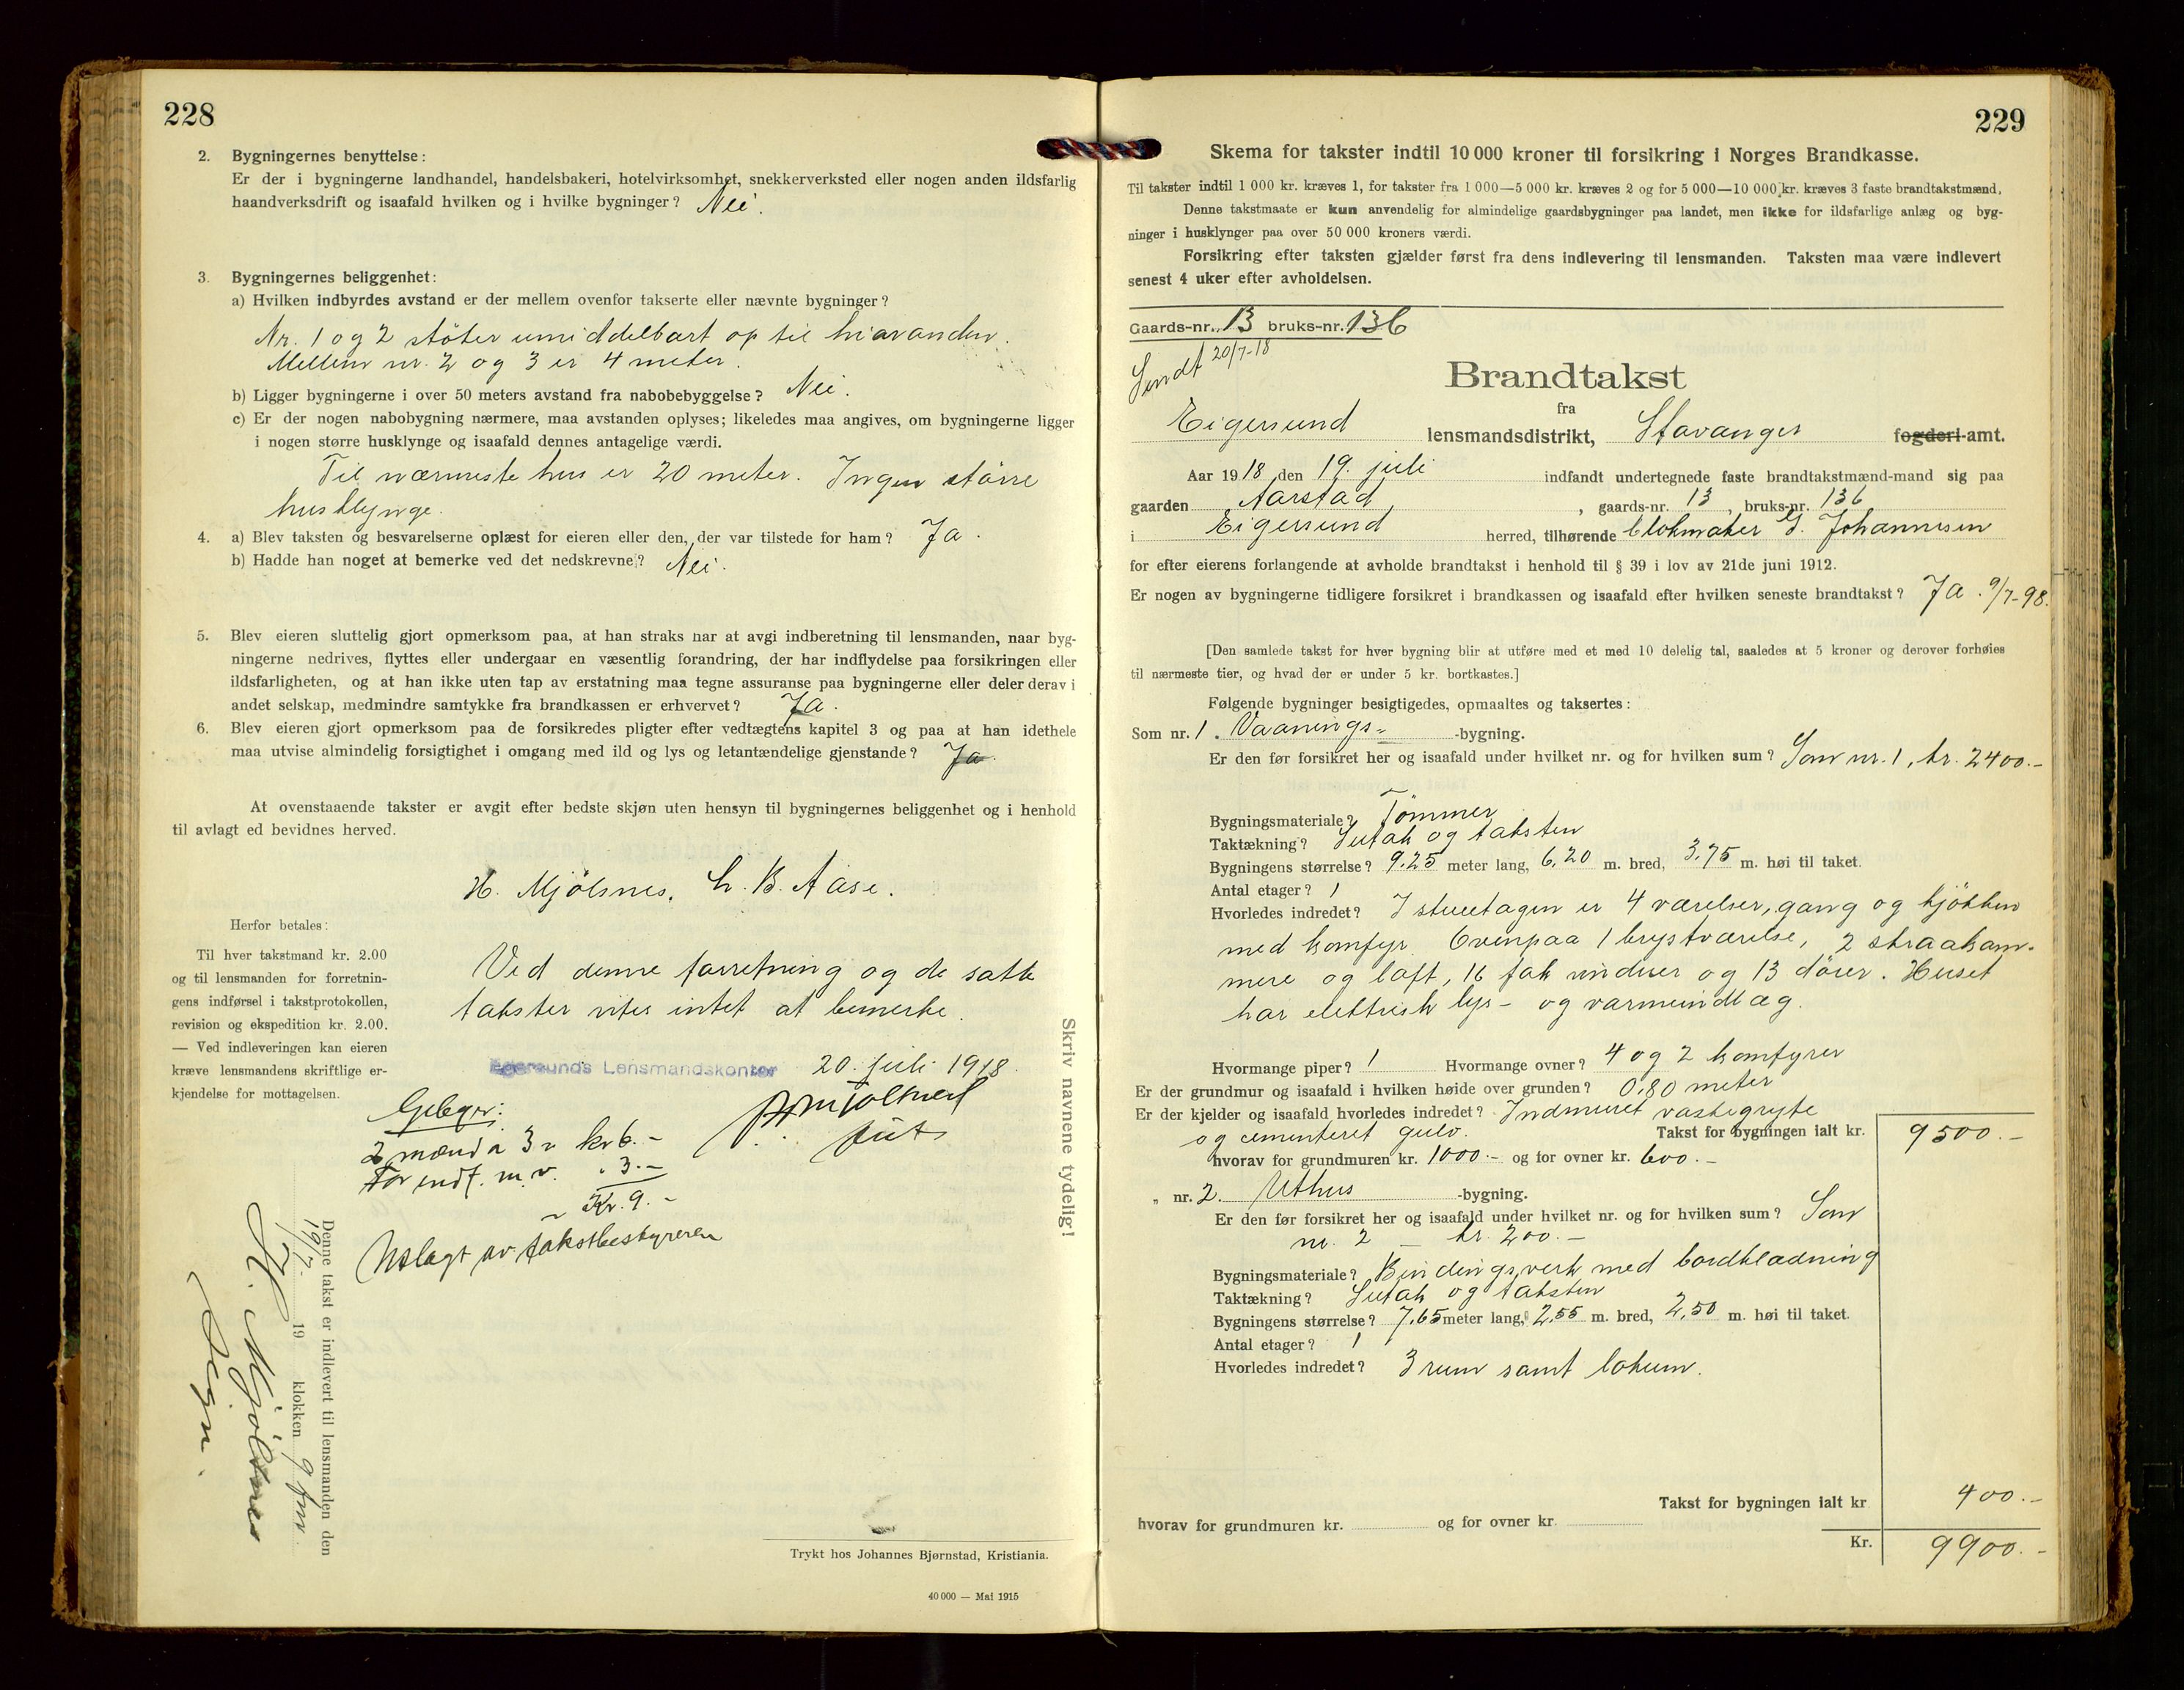 228
2. Bygningernes benyttelse:
Er der i bygningerne landhandel, handelsbakeri, hotelvirksomhet, snekkerverksted eller nogen anden ildsfarlig
haandverksdrift og isaafald hvilken og i hvilke bygninger? Nei.
3. Bygningernes beliggenhet:
a) Hvilken indbyrdes avstand er der mellem ovenfor takserte eller nævnte bygninger?
Nr. 1 og 2 støter umiddelbart op til hverandre.
Mellem nr. 2 og 3 er 4 meter.
b) Ligger bygningerne i over 50 meters avstand fra nabobebyggelse? Nei.
c) Er der nogen nabobygning nærmere, maa avstanden oplyses; likeledes maa angives, om bygningerne ligger
i nogen større husklynge og isaafald dennes antagelige værdi.
Til nærmeste hus er 20 meter. Ingen større
husklynge.
4. a) Blev taksten og besvarelserne oplæst for eieren eller den, der var tilstede for ham? Ja.
b) Hadde han noget at bemerke ved det nedskrevne? Nei.
5. Blev eieren sluttelig gjort opmerksom paa, at han straks har at avgi indberetning til lensmanden, naar byg-
ningerne nedrives, flyttes eller undergaar en væsentlig forandring, der har indflydelse paa forsikringen eller
ildsfarligheten, og at han ikke uten tap av erstatning maa tegne assuranse paa bygningerne eller deler derav i
andet selskap, medmindre samtykke fra brandkassen er erhvervet? Ja.
6. Blev eieren gjort opmerksom paa de forsikredes pligter efter vedtægtens kapitel 3 og paa at han idethele
maa utvise almindelig forsigtighet i omgang med ild og lys og letantændelige gjenstande? Ja.
At ovenstaaende takster er avgit efter bedste skjøn uten hensyn til bygningernes beliggenhet og i henhold
til avlagt ed bevidnes herved.
H. Mjölsnes. Chr. B. Aase.
Herfor betales:
Til hver takstmand kr. 2.00
og til lensmanden for forretnin-
gens indførsel i takstprotokollen,
revision og ekspedition kr. 2.00.
— Ved indleveringen kan eieren
kræve lensmandens skriftlige er-
kjendelse for mottagelsen.
Ved denne forretning og de satte
takster vites intet at bemerke.
Egersunds Lensmandskontor 20. juli 1918.
Gebyr:
2 mænd a 3 " kr 6.-
For indf. m.v. " 3.-
Kr. 9.-
Utlagt av takstbestyreren
Skriv navnene tydelig!
Denne takst er indlevert til lensmanden den
19/7 19 klokken 9 fm
H. Mjölsnes
Trykt hos Johannes Bjørnstad, Kristiania.
40 000 — Mai 1915
229
Skema for takster indtil 10 000 kroner til forsikring i Norges Brandkasse.
Til takster indtil 1 000 kr. kræves 1, for takster fra 1 000—5 000 kr. kræves 2 og for 5 000—10 000 kr. kræves 3 faste brandtakstmænd.
Denne takstmaate er kun anvendelig for almindelige gaardsbygninger paa landet, men ikke for ildsfarlige anlæg og byg-
ninger i husklynger paa over 50 000 kroners værdi.
Forsikring efter taksten gjælder først fra dens indlevering til lensmanden. Taksten maa være indlevert
senest 4 uker efter avholdelsen.
Gaards-nr. 13 bruks-nr. 136
Sendt 20/7-18
Brandtakst
fra
Eigersund lensmandsdistrikt, Stavanger fogderi-amt.
Aar 1918 den 19. juli indfandt undertegnede faste brandtakstmænd-mand sig paa
gaarden Aarstad, gaards-nr. 13, bruks-nr. 136
i Eigersund herred, tilhørende blokmaker G. Johannesen
for efter eierens forlangende at avholde brandtakst i henhold til § 39 i lov av 21de juni 1912.
Er nogen av bygningerne tidligere forsikret i brandkassen og isaafald efter hvilken seneste brandtakst? Ja. 9/7-98.
[Den samlede takst for hver bygning blir at utføre med et med 10 delelig tal, saaledes at 5 kroner og derover forhøies
til nærmeste tier, og hvad der er under 5 kr. bortkastes.]
Følgende bygninger besigtigedes, opmaaltes og taksertes:
Som nr. 1. Vaanings- -bygning.
Er den før forsikret her og isaafald under hvilket nr. og for hvilken sum? Som nr. 1, kr. 2400.-
Bygningsmateriale? Tömmer
Taktækning? Sutak og taksten
Bygningens størrelse? 9.25 meter lang, 6,20 m. bred, 3,75 m. høi til taket.
Antal etager? 1
Hvorledes indredet? I stueetagen er 4 værelser, gang og kjökken
med komfyr. Ovenpaa 1 brystværelse, 2 straakam-
mere og loft, 16 fak vinduer og 13 dörer. Huset
har elektrisk lys- og varmeindlæg.
Hvormange piper? 1 Hvormange ovner? 4 og 2 komfyrer
Er der grundmur og isaafald i hvilken høide over grunden? 0,80 meter
Er der kjelder og isaafald hvorledes indredet? Indmuret vaskegryte
og cementeret gulv. Takst for bygningen ialt kr. 9500.-
hvorav for grundmuren kr. 1000.- og for ovner kr. 600.-
„ nr. 2. Uthus -bygning.
Er den før forsikret her og isaafald under hvilket nr. og for hvilken sum? Som
nr. 2 — kr. 200.-
Bygningsmateriale? Bindingsverk med bordklædning
Taktækning? Sutak og taksten
Bygningens størrelse? 7,65 meter lang, 2,55 m. bred, 2,50 m. høi til taket.
Antal etager? 1
Hvorledes indredet? 3 rum samt lokum.
Takst for bygningen ialt kr 400.-
hvorav for grundmuren kr. og for ovner kr.
Kr. 9900.-